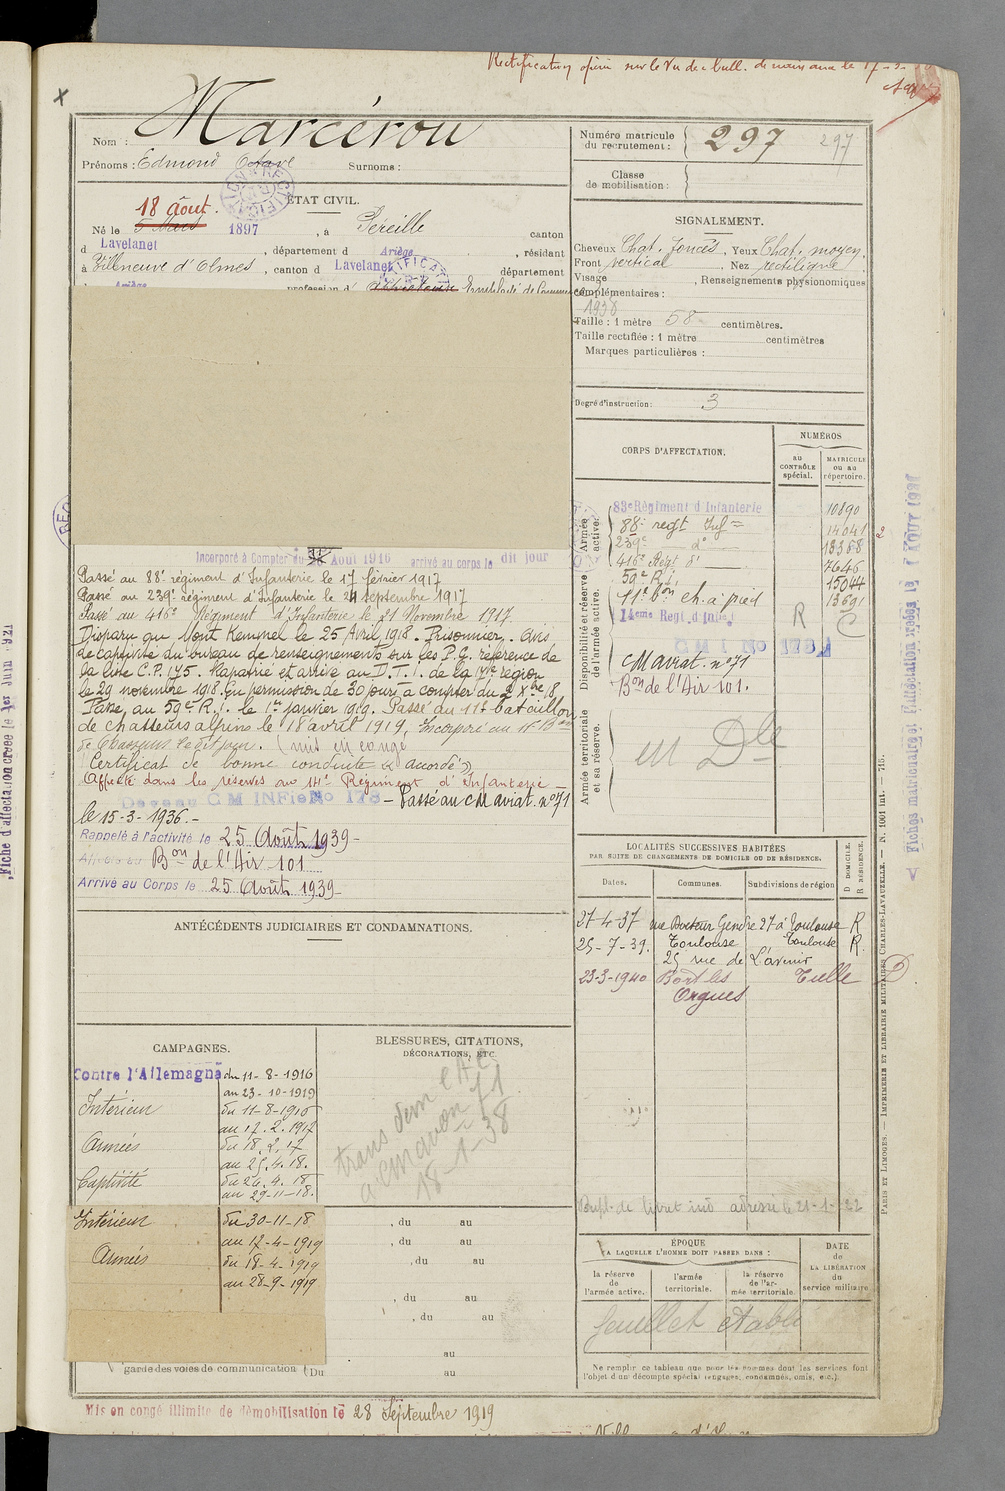 Rectification opérée sur le vu de bull. de naissance le 17-3-
Marcérou
Nom :
Prénoms : Edmond Octave Surnoms :
Numéro matricule
du recrutement : 297 297
Classe
de mobilisation :
ÉTAT CIVIL.
18 août.
Né le 5 Mars 1897 , à Péreille canton
d Lavelanet , département d Ariège , résidant
à Villeneuve d'Olmes , canton d Lavelanet département
d Ariège profession d Employé de Commerce
SIGNALEMENT.
Cheveux Chat. foncés , Yeux Chat. moyen.
Front vertical , Nez rectiligne
Visage , Renseignements physionomiques
complémentaires :
1938
Taille : 1 mètre 58 centimètres.
Taille rectifiée : 1 mètre centimètres
Marques particulières :
Degré d'instruction : 3
CORPS D'AFFECTATION.
NUMÉROS
AU CONTRÔLE spécial.
MATRICULE ou au répertoire.
Armée active.
83e Régiment d'Infanterie 10890
88e regt Inf 14041
239e do 13388
416e Regt do 7646
59e R.I. 15044
Disponibilité et réserve de l'armée active.
11e Bon ch. à pied 13691
14eme Regt d'Infie R
C M I No 178
CM aviat. no 71
Bon de l'Air 101.
Armée territoriale et sa réserve.
un Dle
Incorporé à Compter du Août 1916 arrivé au corps le dit jour
Passé au 88e régiment d'Infanterie le 17 février 1917
Passé au 239e Régiment d'Infanterie le 24 septembre 1917
Passé au 416e Régiment d'Infanterie le 21 Novembre 1917.
Disparu au Mont Kemmel le 25 Avril 1918. Prisonnier. Avis
de captivité du bureau de renseignements sur les P.G. référence de
la liste C.P. 175. Rapatrié et arrivé au D.T.I. de la 17me région
le 29 novembre 1918. En permission de 30 jours à compter du 2 Xbre 18.
Passé au 59e R.I. le 1er janvier 1919. Passé du 11e bataillon
de chasseurs alpins le 18 avril 1919, Incorporé au 11e Bon
de Chasseurs le dit jour. (mis en congé
Certificat de bonne conduite "accordé")
Affecté dans les réserves au 14e Régiment d'Infanterie
Devenu CM INFie No 178 - Passé au CM aviat. no 71
le 15-3-1936.-
Rappelé à l'activité le 25 Août 1939-
Affecté au Bon de l'Air 101
Arrivé au Corps le 25 Août 1939-
ANTÉCÉDENTS JUDICIAIRES ET CONDAMNATIONS.
LOCALITÉS SUCCESSIVES HABITÉES
PAR SUITE DE CHANGEMENTS DE DOMICILE OU DE RÉSIDENCE.
D DOMICILE.
R RÉSIDENCE.
Dates. Communes. Subdivisions de région
27-4-37 rue Docteur Gendre 27 à Toulouse R
25-7-39. Toulouse Toulouse R.
25 rue de L'avenir
23-3-1940 Bort les Tulle D
Orgues
CAMPAGNES.
Contre l'Allemagne du 11-8-1916
au 23-10-1919
Intérieur du 11-8-1916
au 17.2.1917
Armées du 18.2.17
au 25.4.18.
Captivité du 26.4.18
au 29-11-18.
Intérieur du 30-11-18
au 17-4-1919
Armées du 18-4-1919
au 28-9-1919
garde des voies de communication (Du au
BLESSURES, CITATIONS,
DÉCORATIONS, ETC.
18-1-38
, du au
, du au
, du au
, du au
, du au
au
au
Rempl. de livret ind adressé le 21-1-22
ÉPOQUE
A LAQUELLE L'HOMME DOIT PASSER DANS :
la réserve de l'armée active.
l'armée territoriale.
la réserve de l'armée territoriale.
DATE
de
LA LIBÉRATION
du
service militaire
feuillet établi
Ne remplir ce tableau que pour les hommes dont les services font
l'objet d'un décompte spécial (engagés, condamnés, omis, etc.).
Mis en congé illimité de démobilisation le 28 Septembre 1919
PARIS ET LIMOGES. — IMPRIMERIE ET LIBRAIRIE MILITAIRES CHARLES-LAVAUZELLE. — N. 1001 int. — 715.
Fiche d'affectation créée le 1er Juin
Fiches matriculaire et d'affectation créées le 1 AOUT